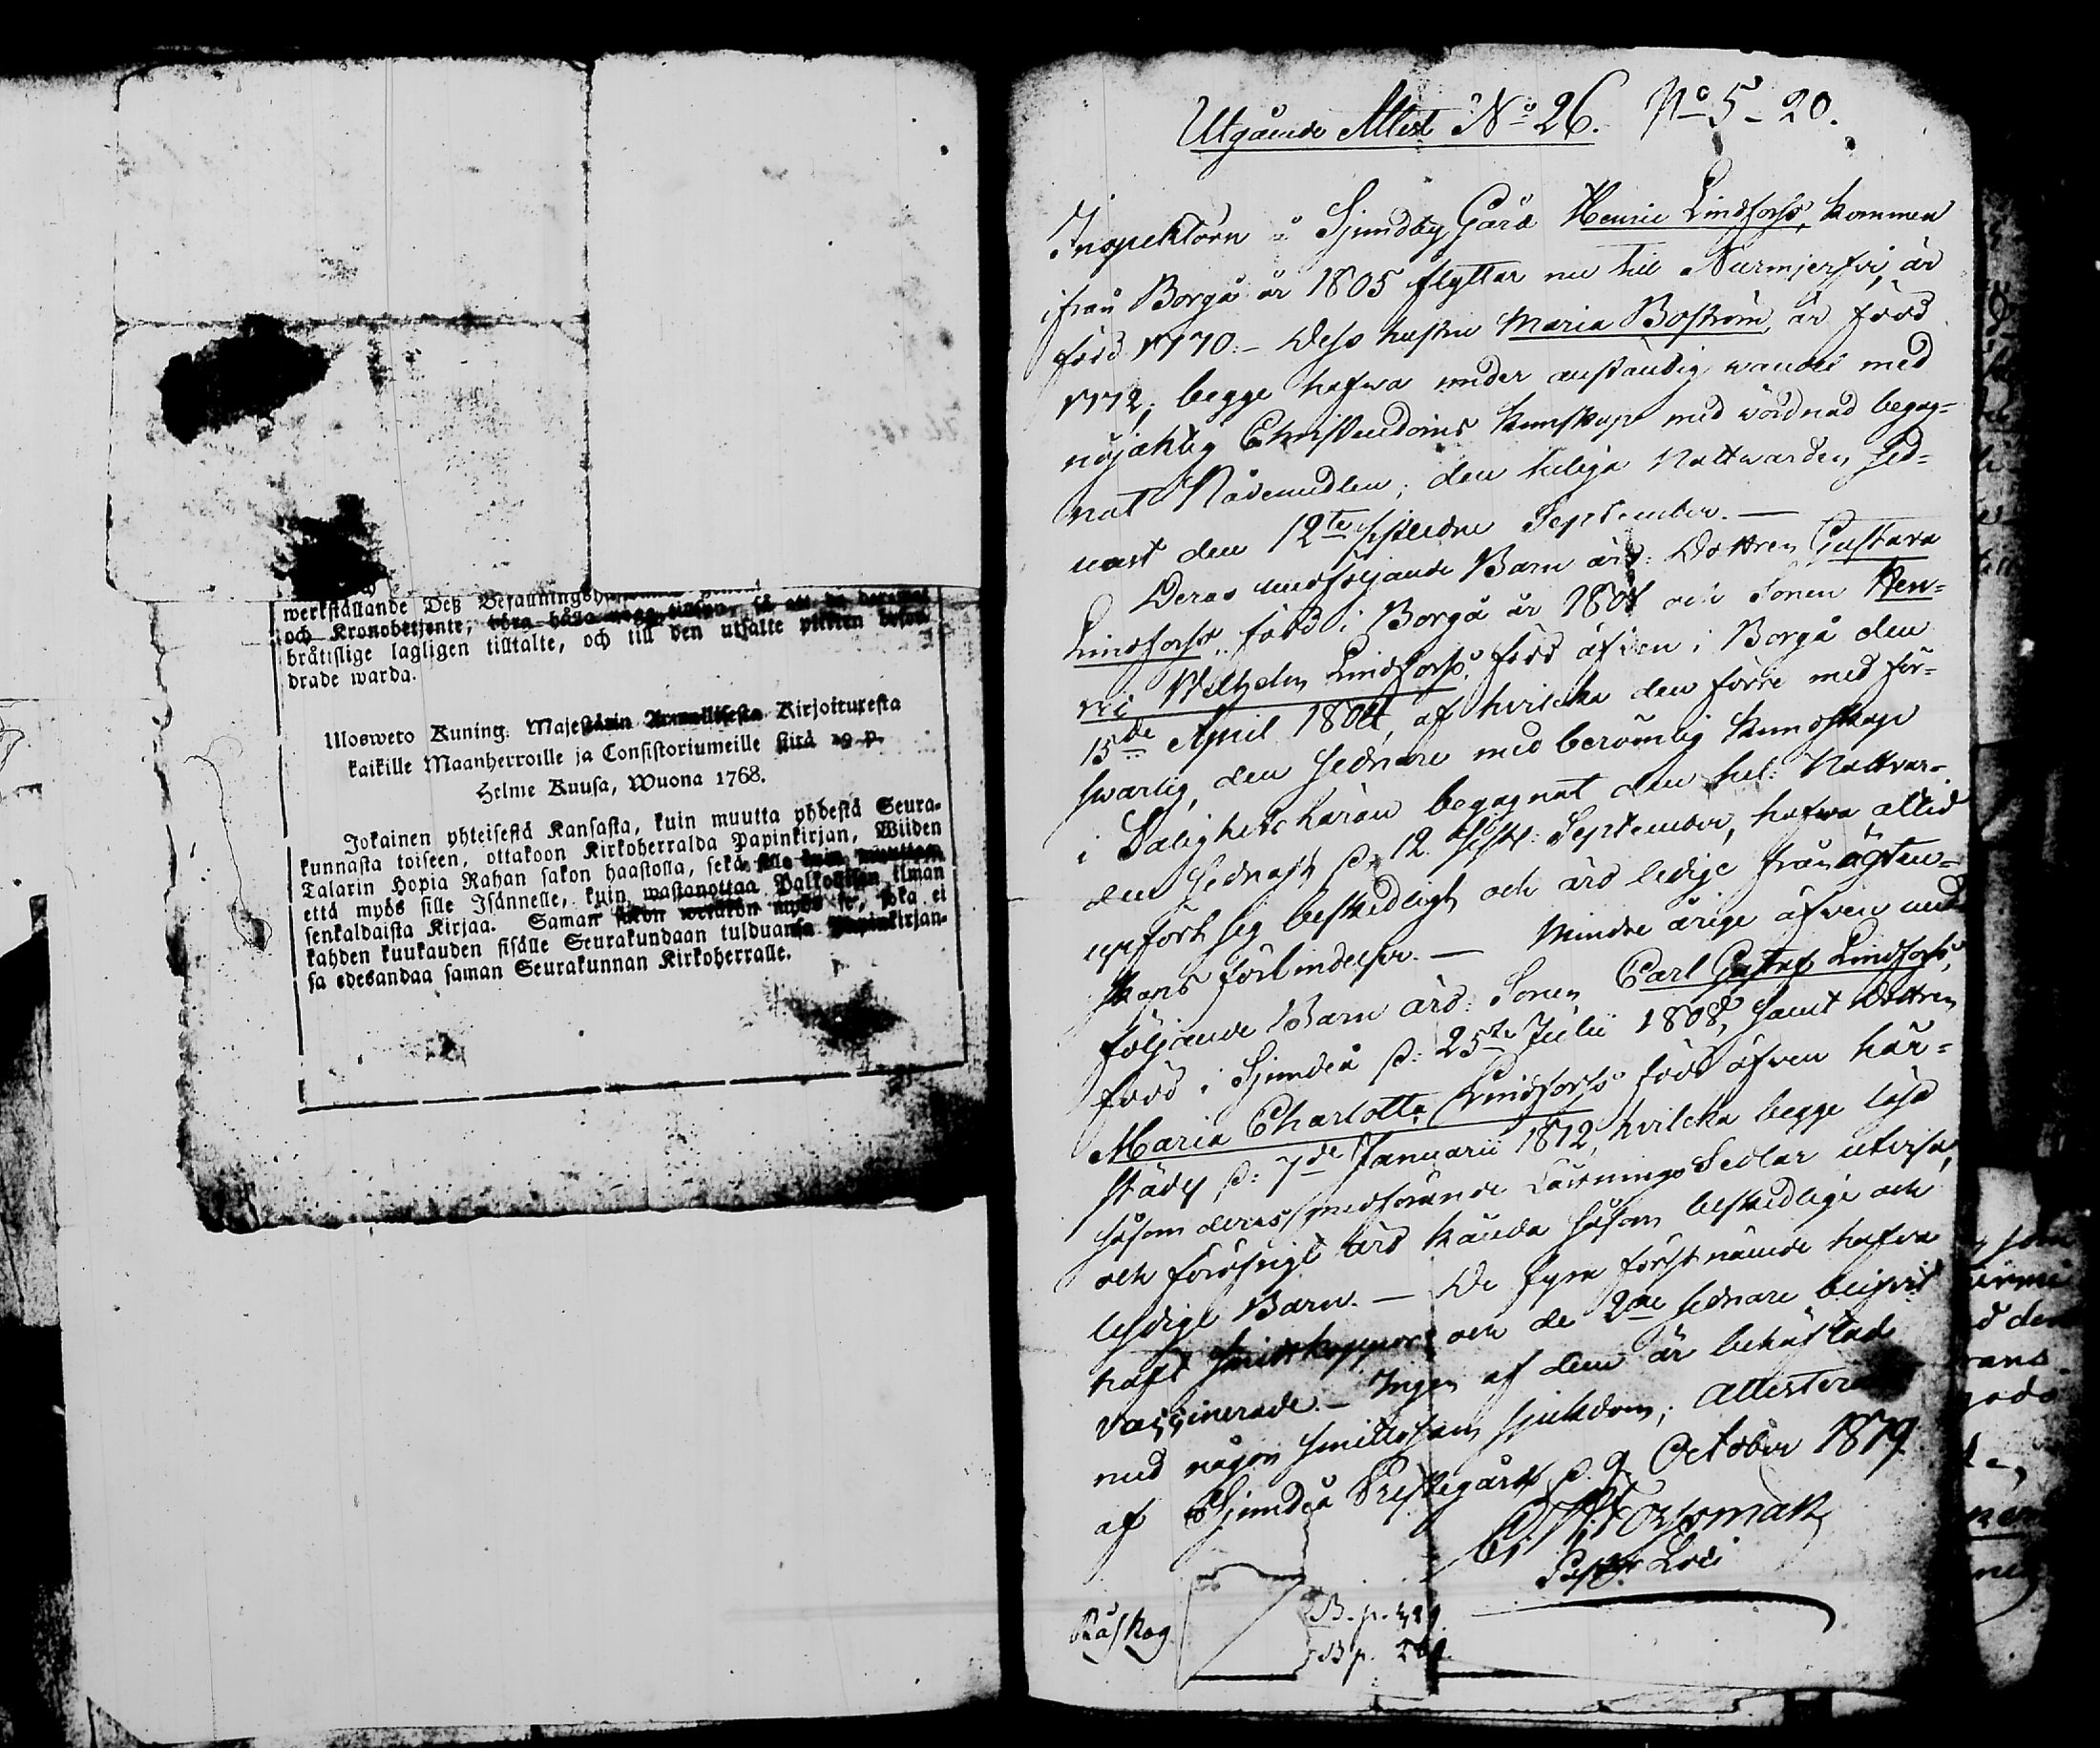 werkställande Deß Befallningsh
och Kronobetjente, båra håla noga
bråttslige lagligen tilltalte, och till den utsatte plikten befor
drade warda.
Ulosweto Kuning. Majestätin Armollisesta Kirjoituxesta
kaikille Maanherroille ja Consistoriumeille sitä 29 p.
Helme Kuusa, Wuona 1768.
Jokainen yhteisestä Kansasta, kuin muutta yhdestä Seura-
kunnasta toiseen, ottakoon Kirkoherralda Papinkirjan, Wiiden
Talarin Hopia Rahan sakon haastolla, sekä
että myös sille Isännelle, kuin wastanottaa Palkollisen ilman
senkaldaista Kirjaa. Saman sakon wetäkön myös se, joka ei
kahden kuukauden sisälle Seurakundaan tulduansa Papinkirjan-
sa edesandaa saman Seurakunnan Kirkoherralle.
Utgående Attest No 26. No 5 - 20.
Inspektorn å Sjundby Gård Henric Lindforss, kommen
ifrån Borgå år 1805 flyttar nu till Nurmjerfvi, är
född 1770. - Dess hustru Maria Boström är född
1772; begge hafwa under anständig wandel med
nöjaktig Christendoms kunskap med wördnad begag-
nat Nådemedlen; den heliga Nattwarden sed-
nast den 12te sistledne September. -
Deras medföljande Barn äro: Dottren Gustava
Lindforss, född i Borgå år 1801 och Sonen Hen-
ric Wilhelm Lindforss, född äfven i Borgå den
15de April 1804, af hvilcka den förre med för-
swarlig, den sednare med berömlig kundskap
i Salighets läran begagnat den hel: Nattvar-
den sednast d. 12 sistl: September, hafwa alltid
upfört sig beskedligt och äro ledige från ägten-
skaps förbindelser. - Mindre årige äfven med-
följande Barn äro: Sonen Carl Gustaf Lindforss,
född i Sjundeå d: 25te Julii 1808, samt Dottren
Maria Charlotta Lindforss född äfven här-
städes d: 7de Januarii 1812, hvilcka begge läsa
såsom deras medföljande Läsnings Sedlar utvisa,
och föröfrigt äro kända såsom beskedlige och
ledige Barn. - De fyra förstnämde hafva
haft Smittkoppor och de 2ne sednare blifvit
vaccinerade. - Ingen af dem är behäftad
med någon smittosam sjukdom; attesterar
af Sjundeå Prestegård d. 9 October 1819.
Past. Loci
Råskog
B. p. 
B p.